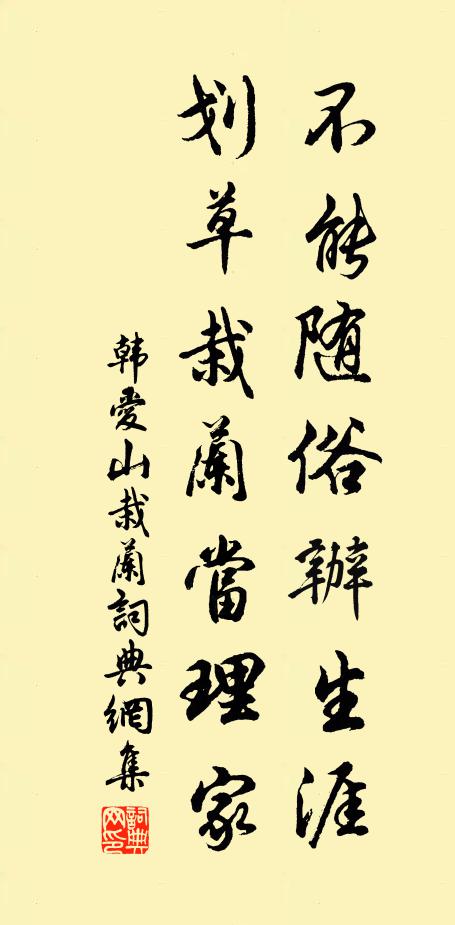 不能随俗辦生涯
划草栽蘭當理家
韩愛山栽蘭詞典網集
詞典网印